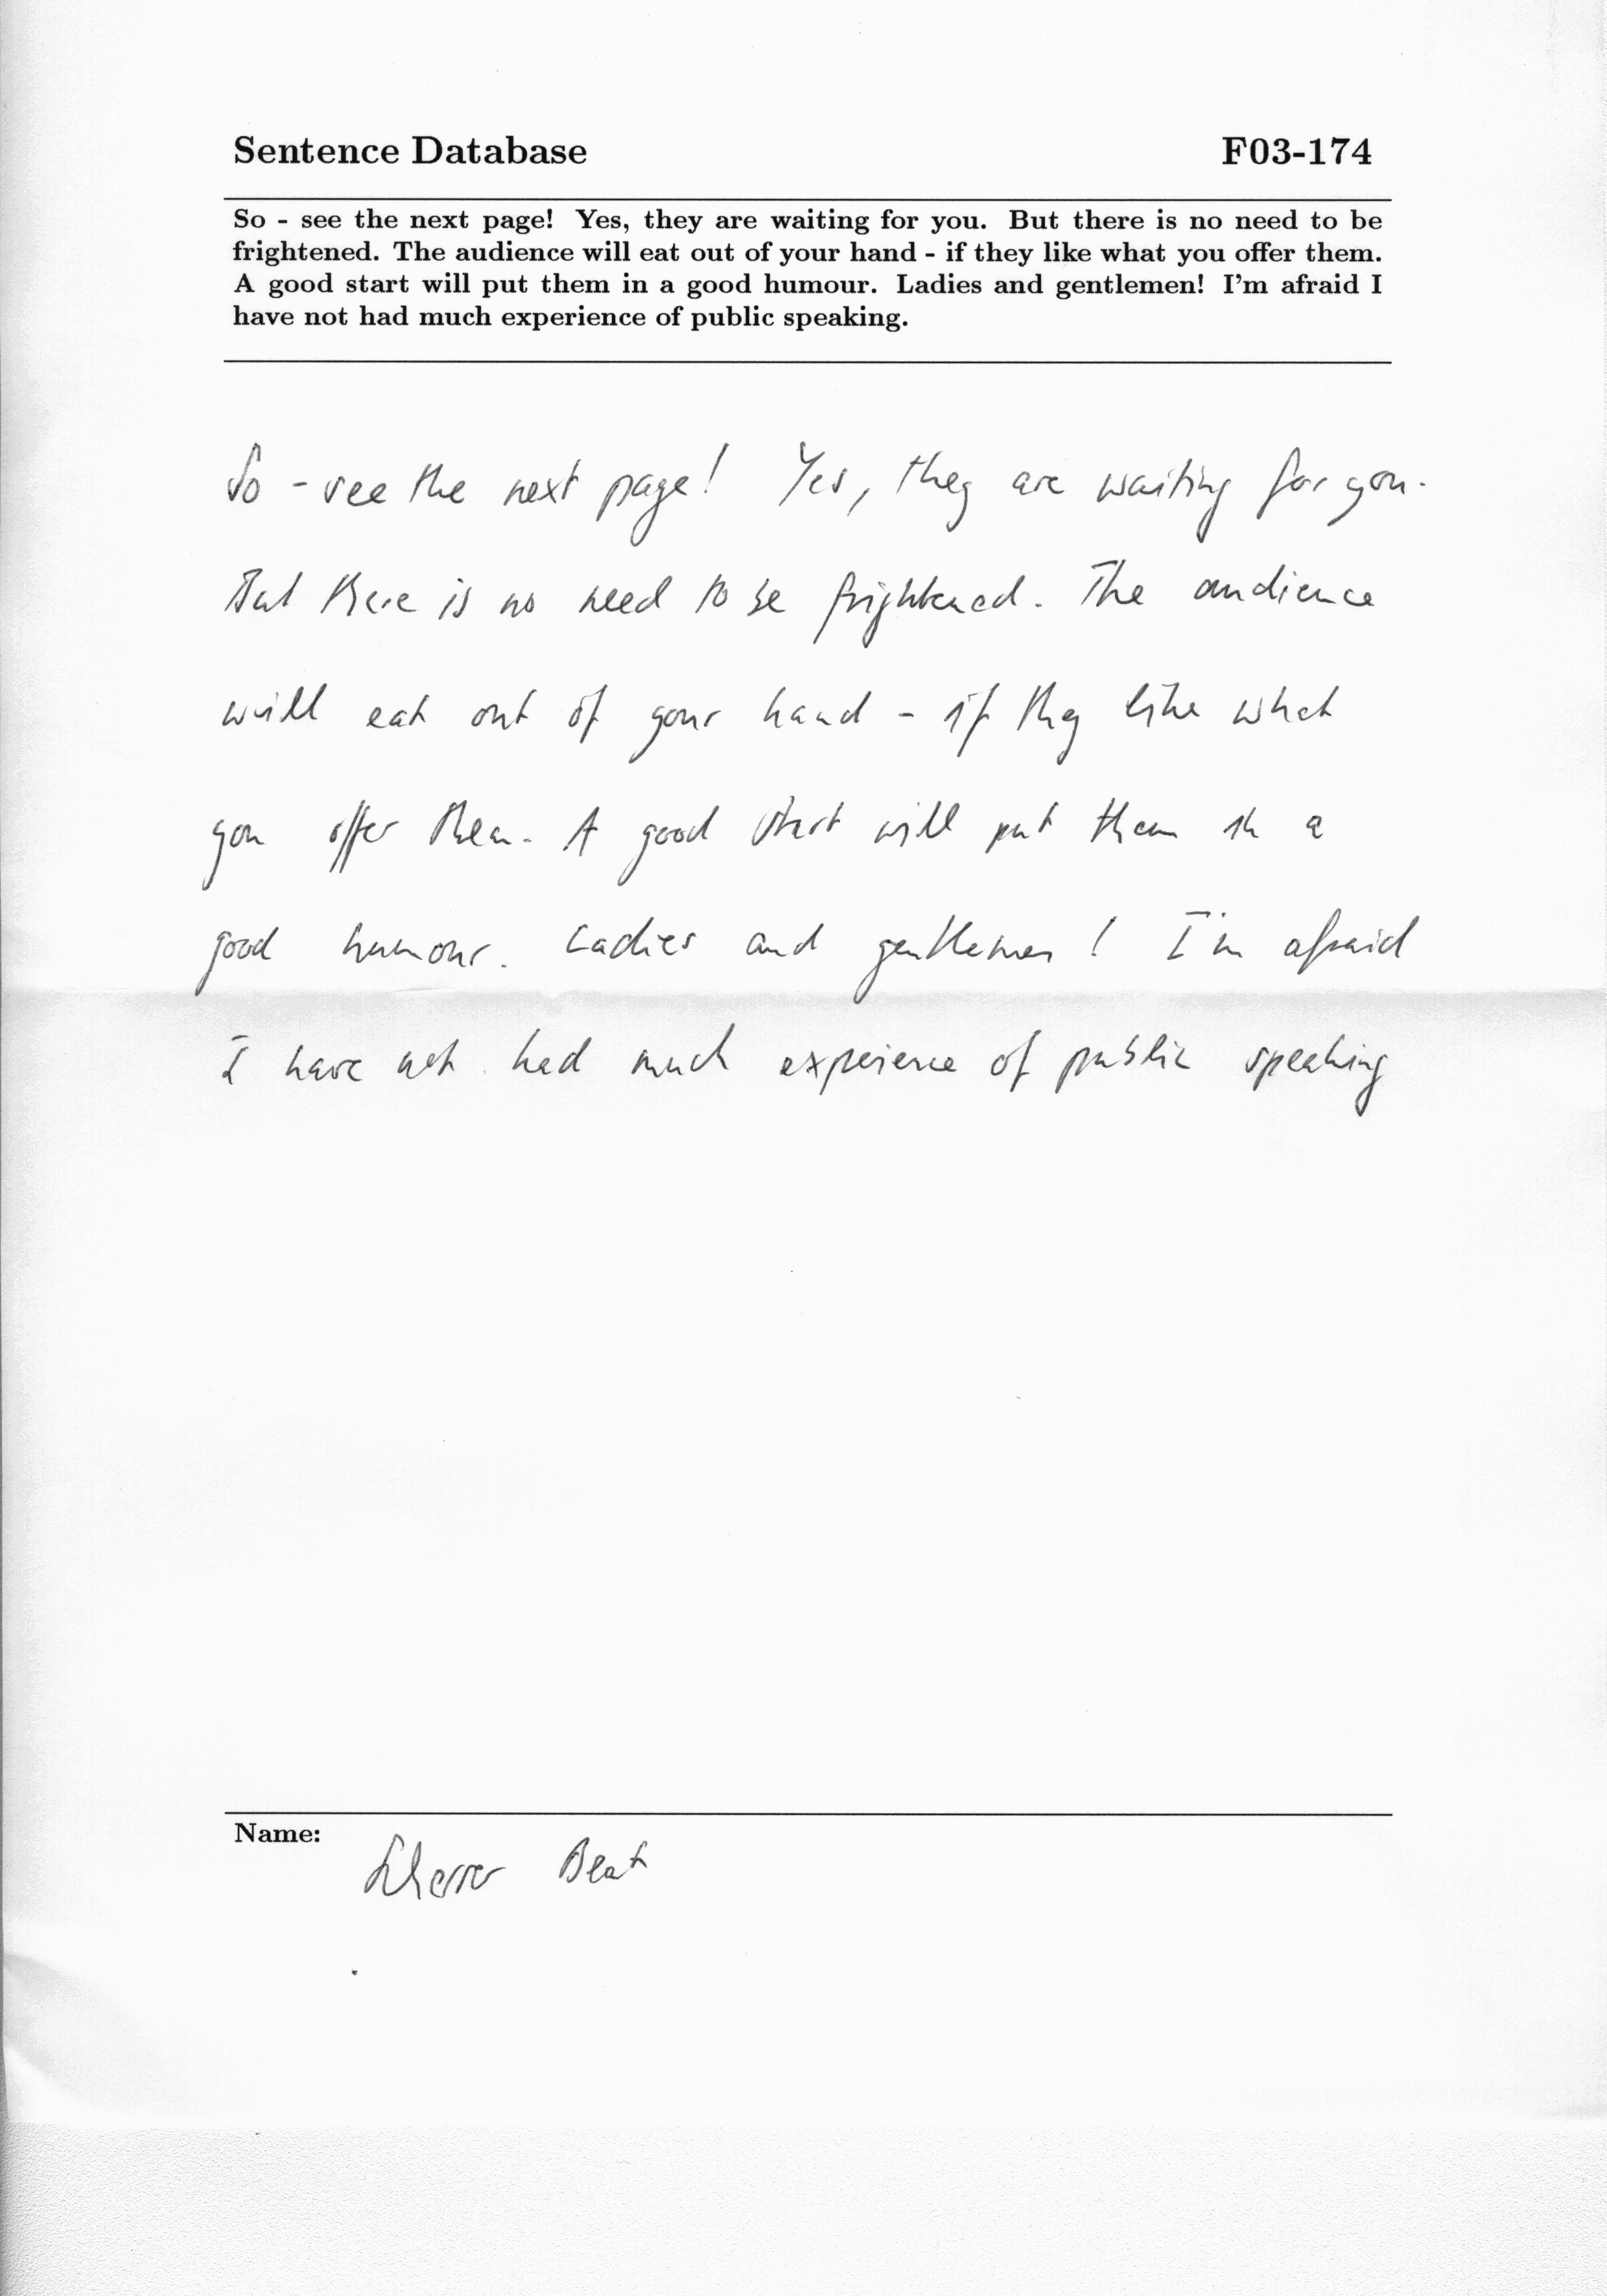 Sentence Database F03-174
So - see the next page! Yes, they are waiting for you. But there is no need to be
frightened. The audience will eat out of your hand - if they like what you offer them.
A good start will put them in a good humour. Ladies and gentlemen! I'm afraid I
have not had much experience of public speaking.
So - see the next page! Yes, they are waiting for you.
But there is no need to be frightened. The audience
will eat out of your hand - if they like what
you offer them. A good start will put them in a
good humour. Ladies and gentlemen! I'm afraid
I have not had much experience of public speaking
Name: Scherrer Beat